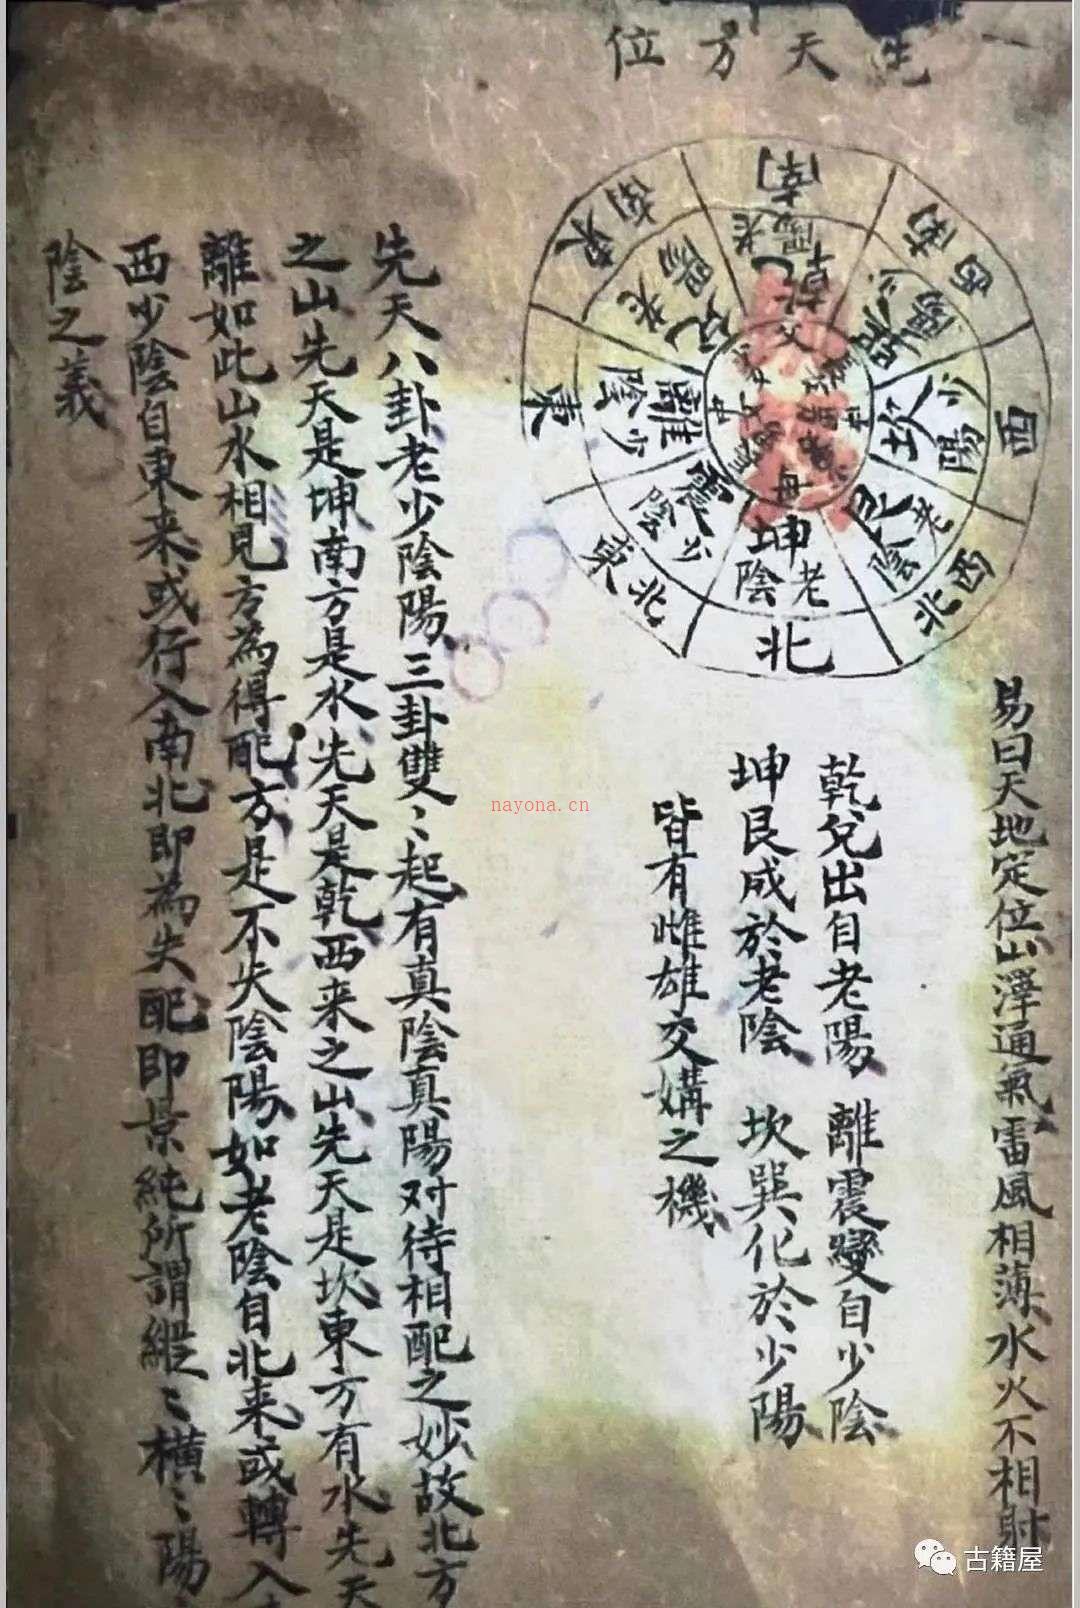 一先天方位
南
老陽
乾
父
西南
少陽
巽
西
少陽
坎
西北
老陰
艮
北
老陰
坤
母
東北
少陰
震
東
少陰
離
中
東南
老陽
兌
易曰天地定位山澤通氣雷風相薄水火不相射
乾兌出自老陽離震變自少陰
坤艮成於老陰坎巽化於少陽
皆有雌雄交媾之機
先天八卦老少陰陽三卦雙〻起有真陰真陽对待相配之妙故北方
之山先天是坤南方是水先天是乾西来之山先天是坎東方有水先天
離如此山水相見方為得配方是不失陰陽如老陰自北来或轉入
西少陰自東来或行入南北即為失配即景純所謂縱〻橫〻陽
陰之義
nayona.cn
古籍屋